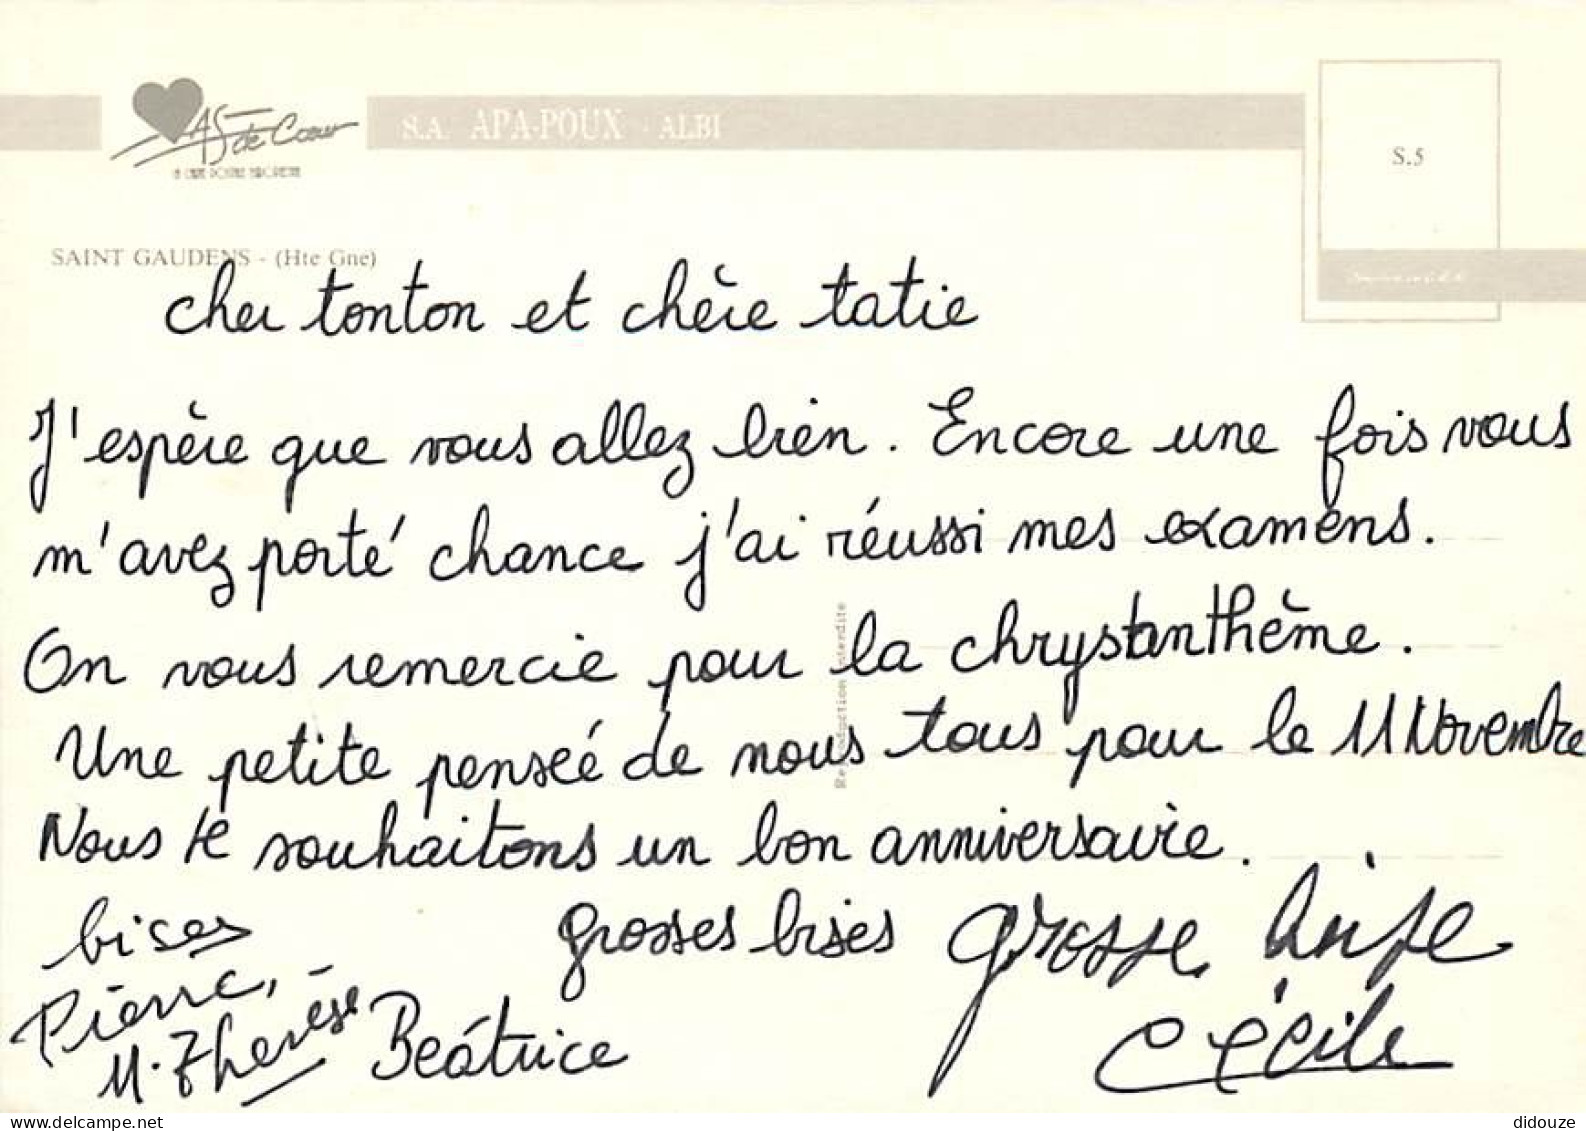 AS de Coeur
S.A. APA-POUX - ALBI
S.5
SAINT GAUDENS - (Hte Gne)
cher tonton et chère tatie
J'espère que vous allez bien. Encore une fois vous
m'avez porté chance j'ai réussi mes examens.
On vous remercie pour la chrysthanthème.
Une petite penseé de nous tous pour le 11 Novembre
Nous te souhaitons un bon anniversaire.
bises grosses bises grosse bise
Pierre,
M. Therèse Beátrice Cécile
Reproduction interdite
didouze